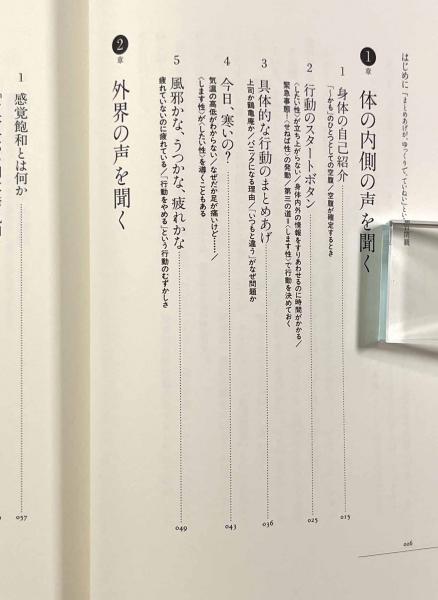 はじめに 「まとめあげが、ゆっくりで、ていねい」とい
006
1章 体の内側の声を聞く
1 身体の自己紹介
「〜かも」のひとつとしての空腹／空腹が確定するとき
015
2 行動のスタートボタン
〈したい性〉が立ち上がらない／身体内外の情報をすりあわせるのに時間がかかる／
緊急事態！〈せねば性〉の発動／第三の道＝〈します性〉で行動を決めておく
025
3 具体的な行動のまとめあげ
上司か鶴亀庵か／パニックになる理由／「いつもと違う」がなぜ問題か
036
4 今日、寒いの？
気温の高低がわからない／なぜだか足が痛いけど……／
〈します性〉が〈したい性〉を導くこともある
043
5 風邪かな、うつかな、疲れかな
疲れていないのに疲れている／「行動をやめる」という行動のむずかしさ
049
2章 外界の声を聞く
1 感覚飽和とは何か
057